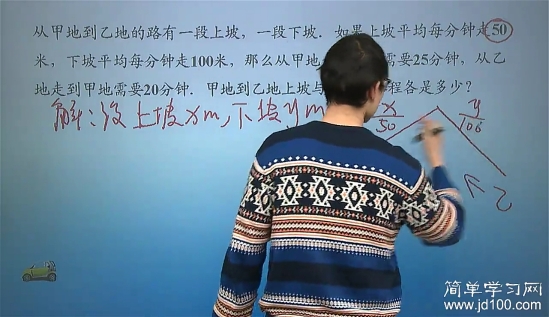 从甲地到乙地的路有一段上坡，一段下坡．如果上坡平均每分钟走50
米，下坡平均每分钟走100米，那么从甲地 需要25分钟，从乙
地走到甲地需要20分钟．甲地到乙地上坡与 程各是多少？
解：设上坡xm，下坡ym
x
50
y
100
乙
简单学习网
www.jd100.com